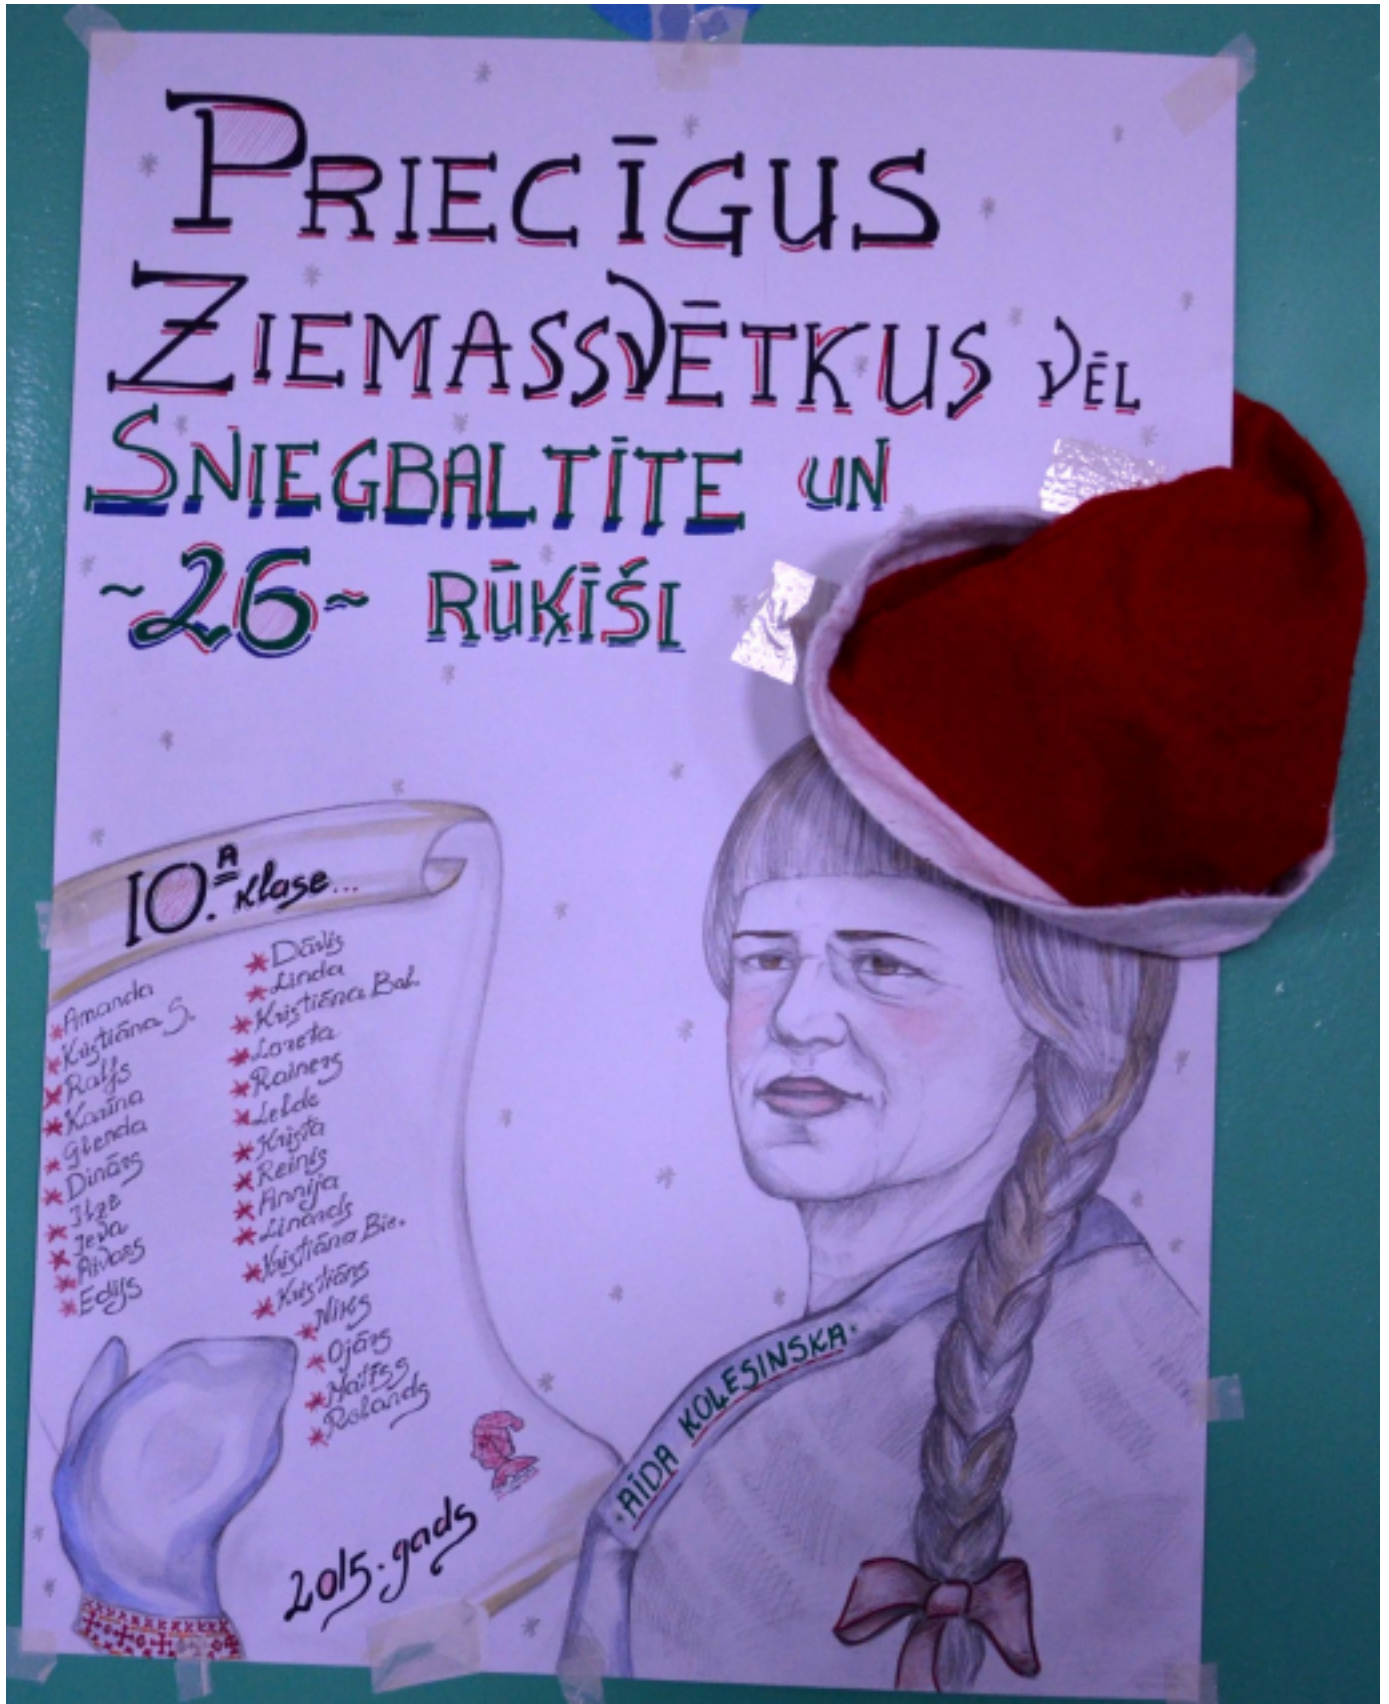 PRIECĪGUS
ZIEMASSVĒTKUS VĒL
SNIEGBALTĪTE UN
~26~ RŪĶĪŠI
10.A klase...
Amanda
Kristiāna S.
Ralfs
Karīna
Glenda
Dinārs
Ilze
Ieva
Aivars
Edijs
Dāvis
Linda
Kristiāna Bal.
Loreta
Rainers
Lelde
Krista
Reinis
Annija
Linards
Kristiāna Bie.
Kristiāns
Niks
Ojārs
Matīss
Rolands
2015. gads
·AĪDA KOĻESINSKA·